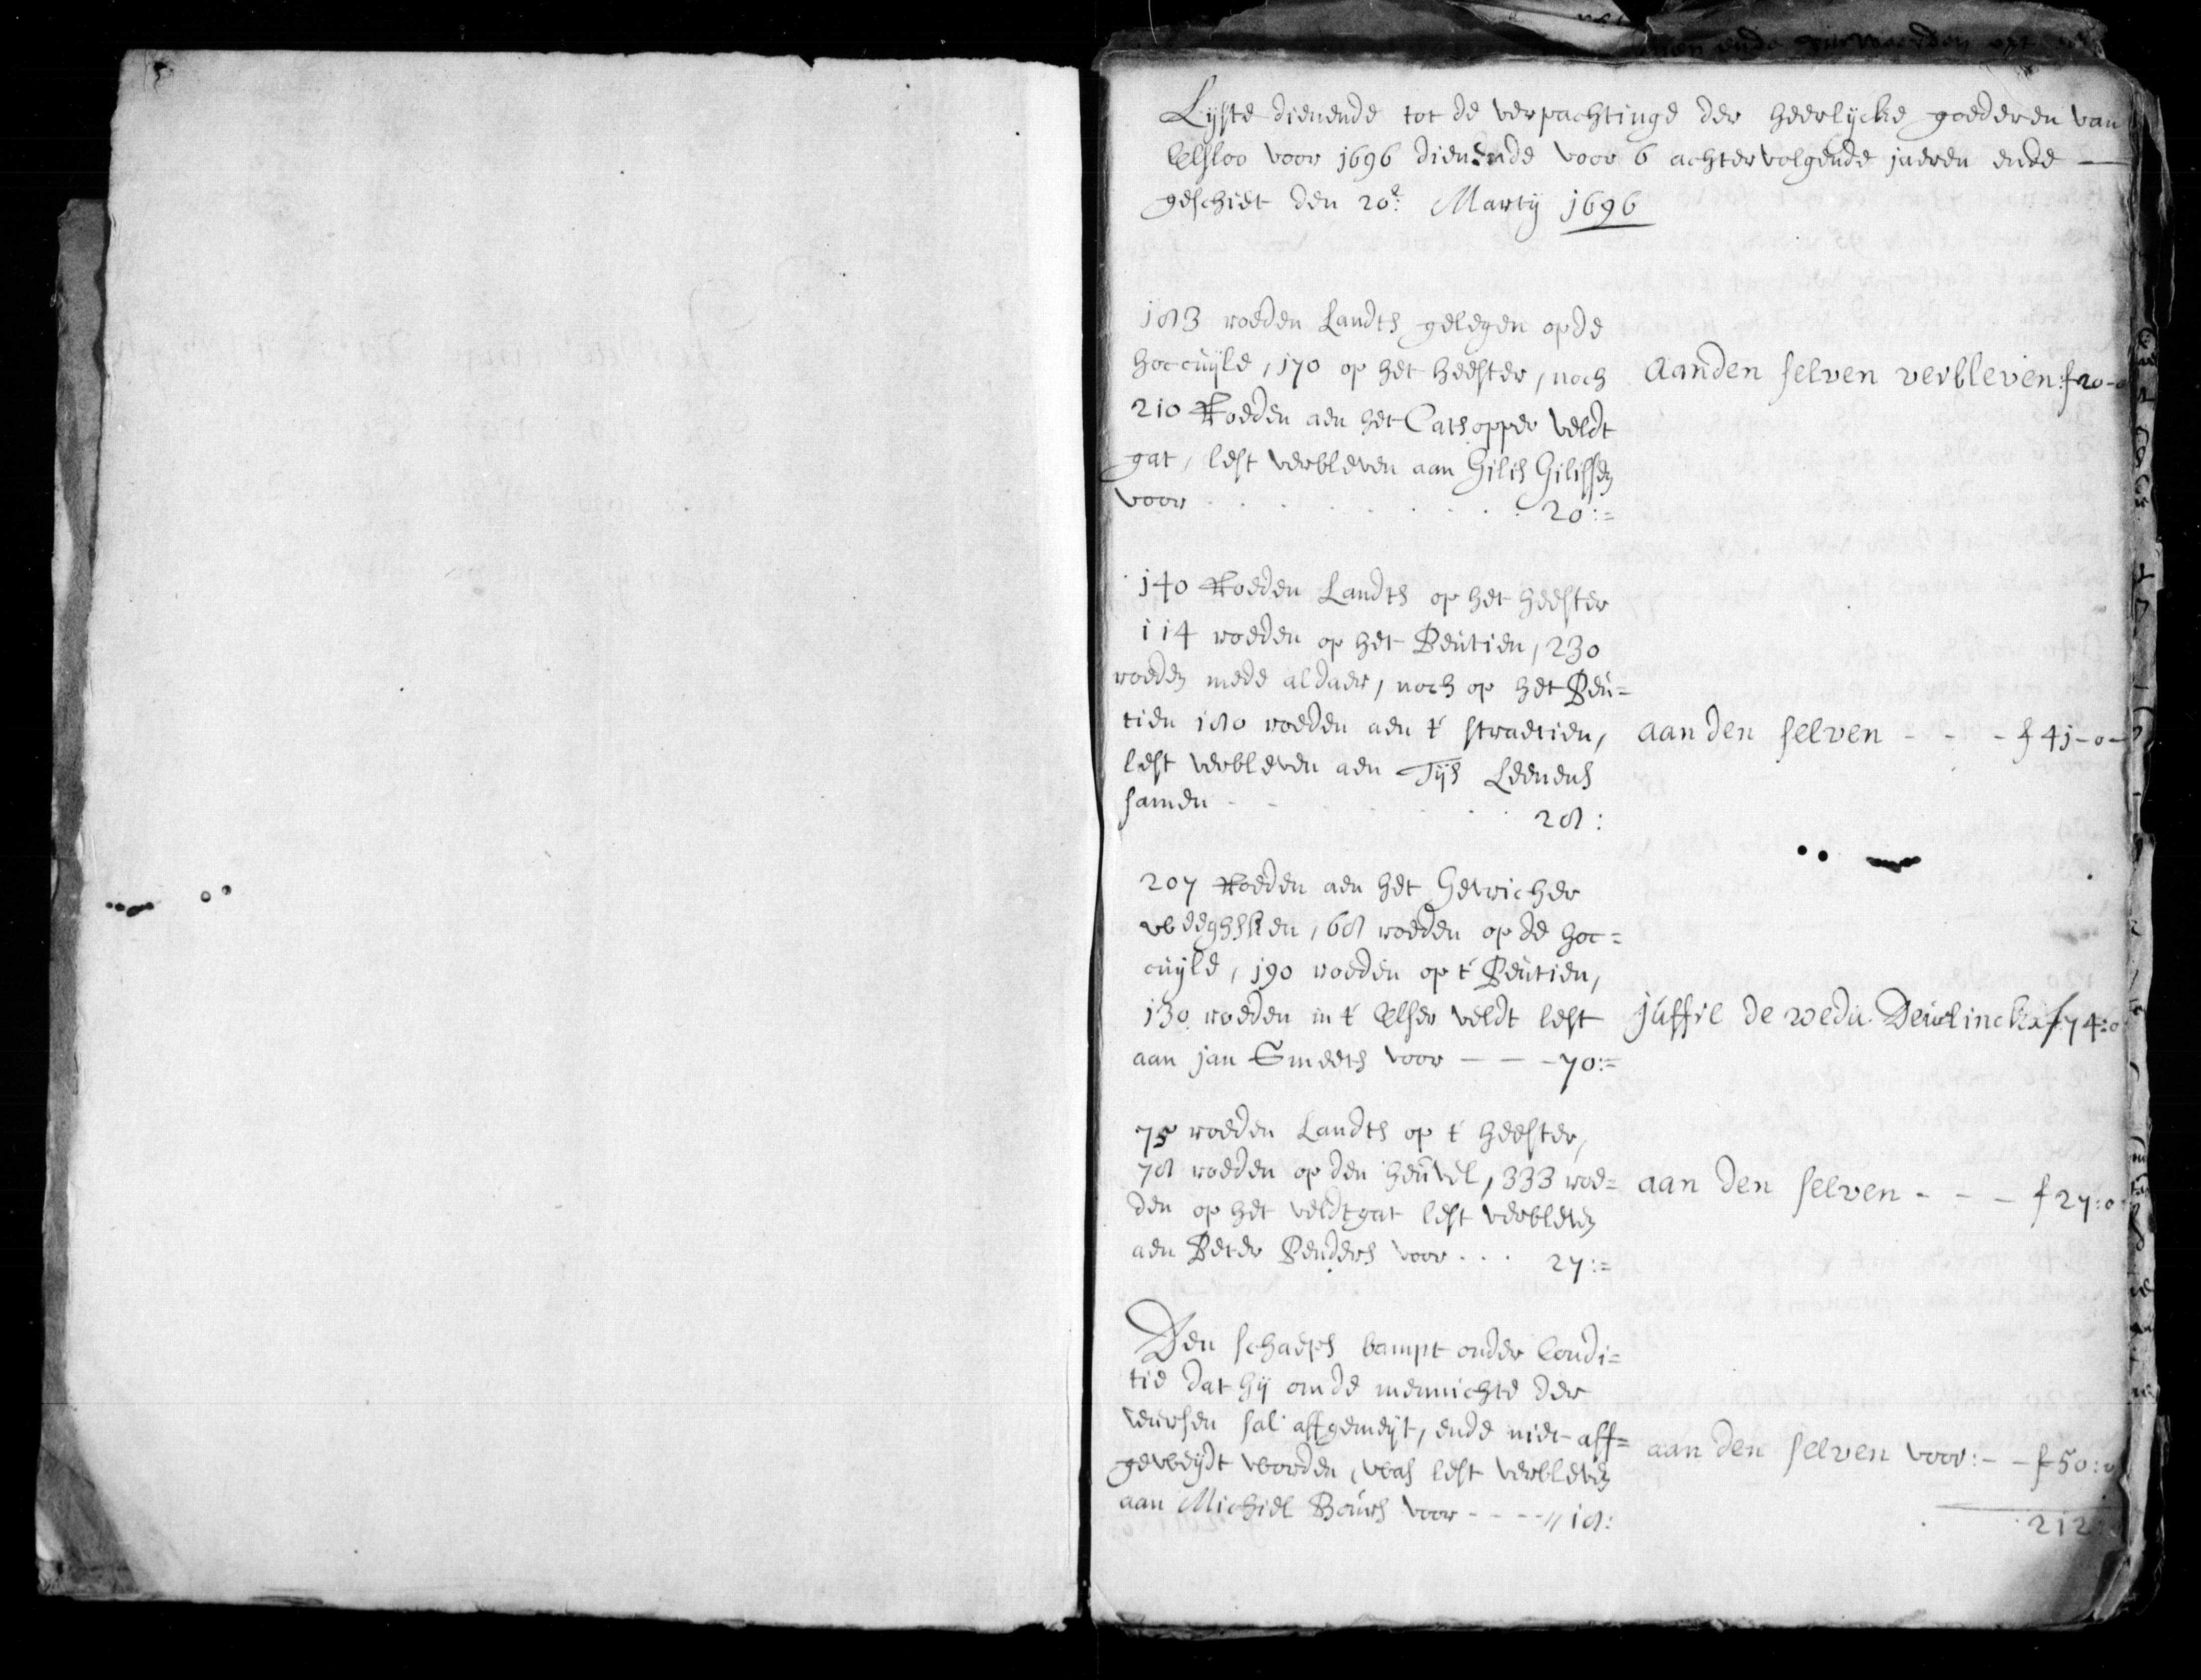 Lijste dienende tot de verpachtinge der heerlijcke goederen van
Elsloo voor 1696 dienende voor 6 achtervolgende jaeren ende
geschiet den 20e: Martij 1696
183 roeden Landts gelegen opde
hoccuijle, 170 op het heester, noch
210 Roeden aen het Catsopper veldt
gat, lest verbleven aan Gilis Gilissen
voor . . . . . . . . 20:=
Aanden selven verbleven: f 20-0
140 Roeden Landts op het heester
114 roeden op het Beutien, 230
roeden mede aldaer, noch op het Beu=
tien 180 roeden aen t' straetien,
lest verbleven aen Tijs Leenens
samen - - . . . . . 28:
aan den selven - - - f 41-0-
207 Roeden aen het
68 roeden op de hoc=
cuijle, 190 roeden op t' Beutien,
130 roeden in t' Elser veldt lest
aan jan Smeets voor - - - 70:=
juffr de wedu f 74:0
75 roeden Landts op t' heester,
78 roeden op den heuvel, 333 roe=
den op het veldtgat lest verbleven
aen Peter Penders voor . . . 27:=
aan den selven - - - f 27:0
Den schaeps bampt onder Condi=
tie dat hij om de mennichte der
sal affgemeijt, ende niet aff=
geweijdt worden, was lest verbleven
aan Michiel Bours voor - - - - 18:
aan den selven voor: - - f 50:0
212